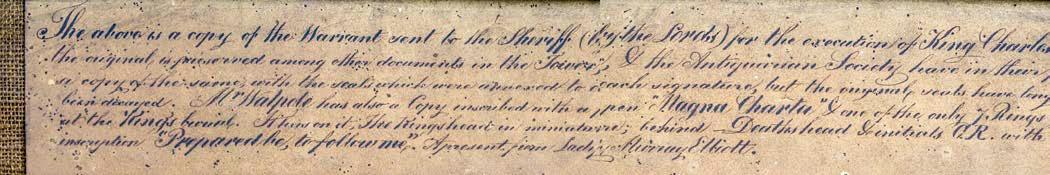 The above is a copy of the Warrant sent to the Sheriff (by the Lords) for the execution of King Charles
the original is preserved among other documents in the Tower, & the Antiquarian Society have in their
a copy of the same, with the seals which were annexed to each signature, but the original seals have long
been decayed. Mr Walpole has also a Copy inscribed with a pen "Magna Charta" & one of the only 7 Rings
at the King's burial. It has on it, the Kings head in miniature; behind Deaths head & initials C.R. with
inscription "Prepared be, to follow me," A present from Lady Murray Elliott.